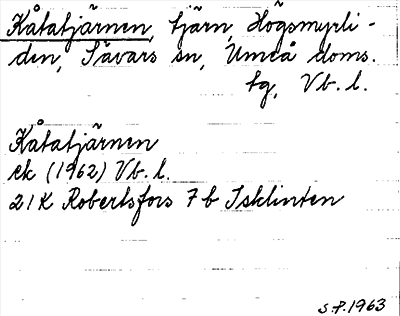 Kåtatjärnen, tjärn, Högsmyrli-
den, Sävars sn, Umeå doms.
tg, Vb. l.
Kåtatjärnen
ek (1962) Vb. l.
21K Robertsfors 7b Isklinten
S.P. 1963